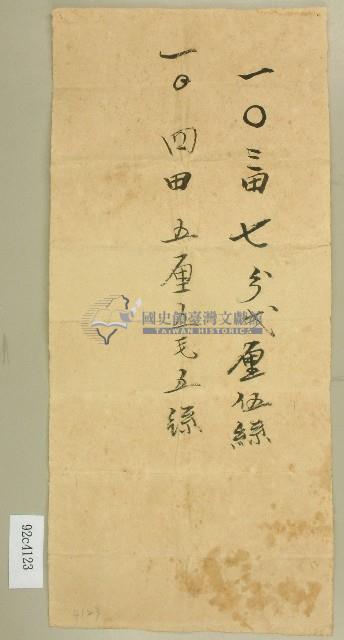 一〇三田七分弍厘伍絲
一〇四田五厘五毛五絲
國史館臺灣文獻館
TAIWAN HISTORICA
92c4123
4123